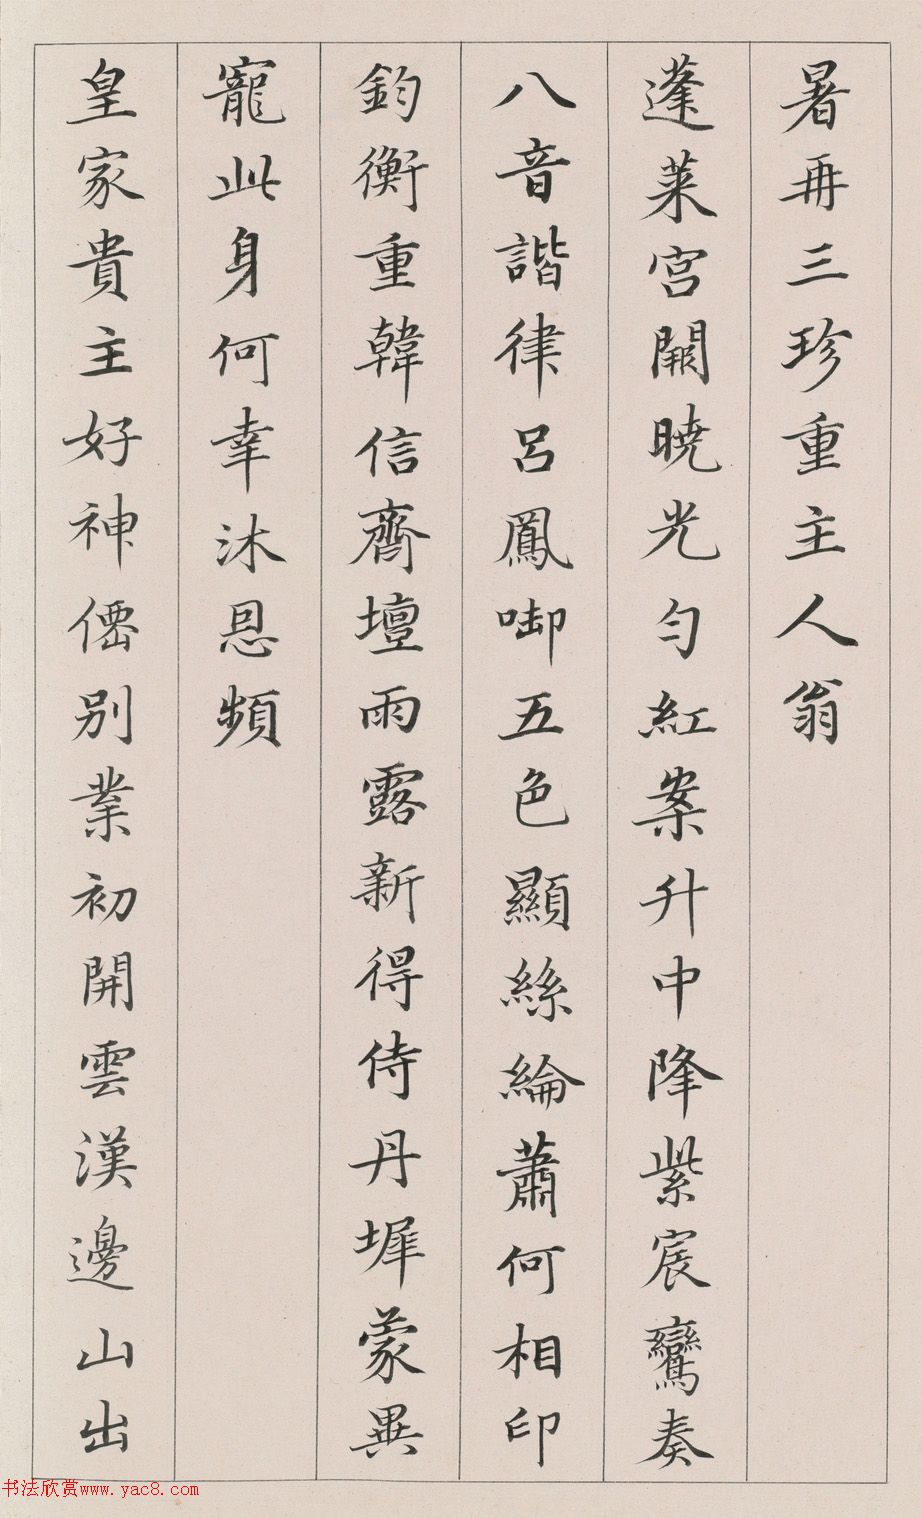 暑再三珍重主人翁
蓬萊宮闕曉光勻紅案升中降紫宸鸞奏
八音諧律呂鳳啣五色顯絲綸蕭何相印
鈞衡重韓信齊壇雨露新得侍丹墀蒙異
寵此身何幸沐恩頻
皇家貴主好神僊別業初開雲漢邊山出
书法欣赏www.yac8.com